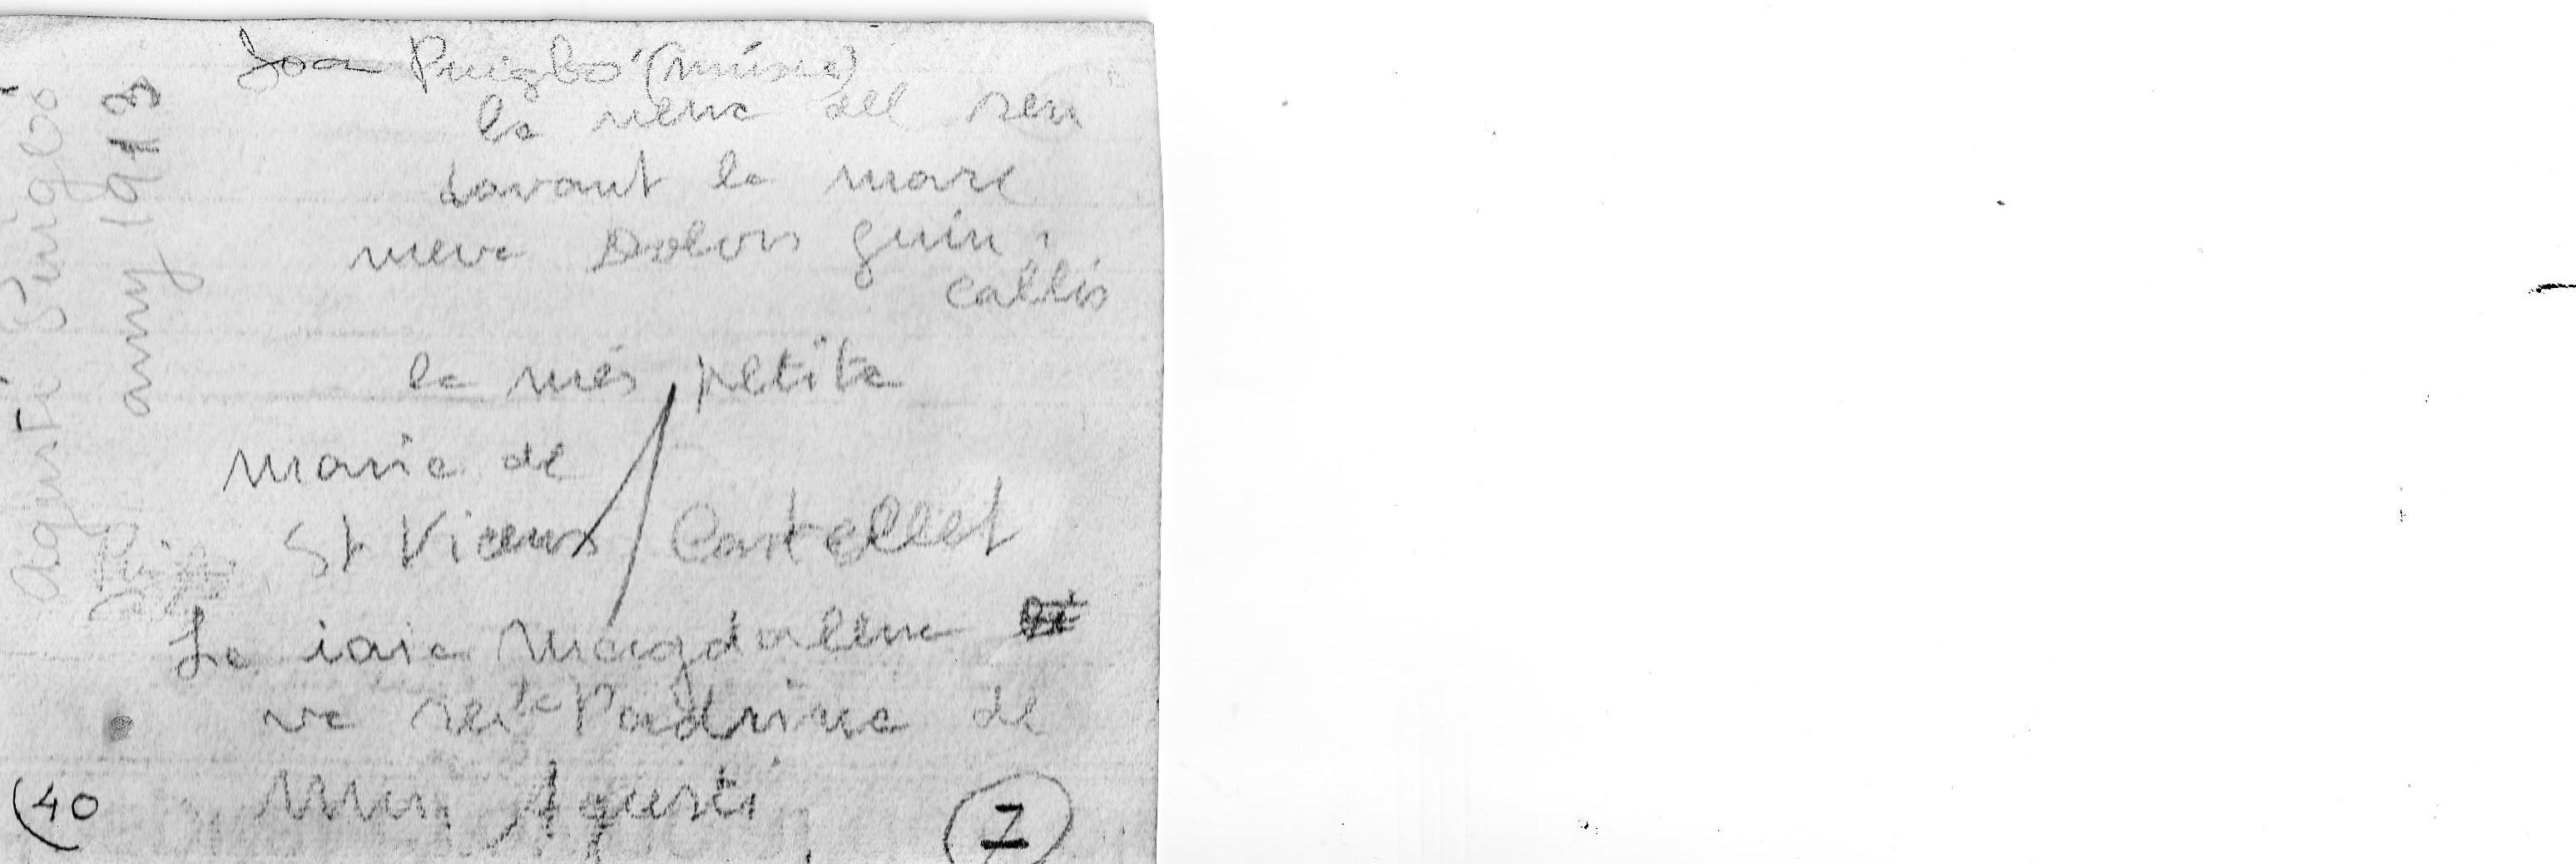 Joan Puigbó (músic)
la nena del seu
davant la mare
meva Dolors Guiu i
Callís
la més petita
Maria de
St Vicens / Castellet
La iaia Magdalena
va ser la Padrina de
Mn. Agustí
(40
7
Agustí Puigbó
any 1913
Puig